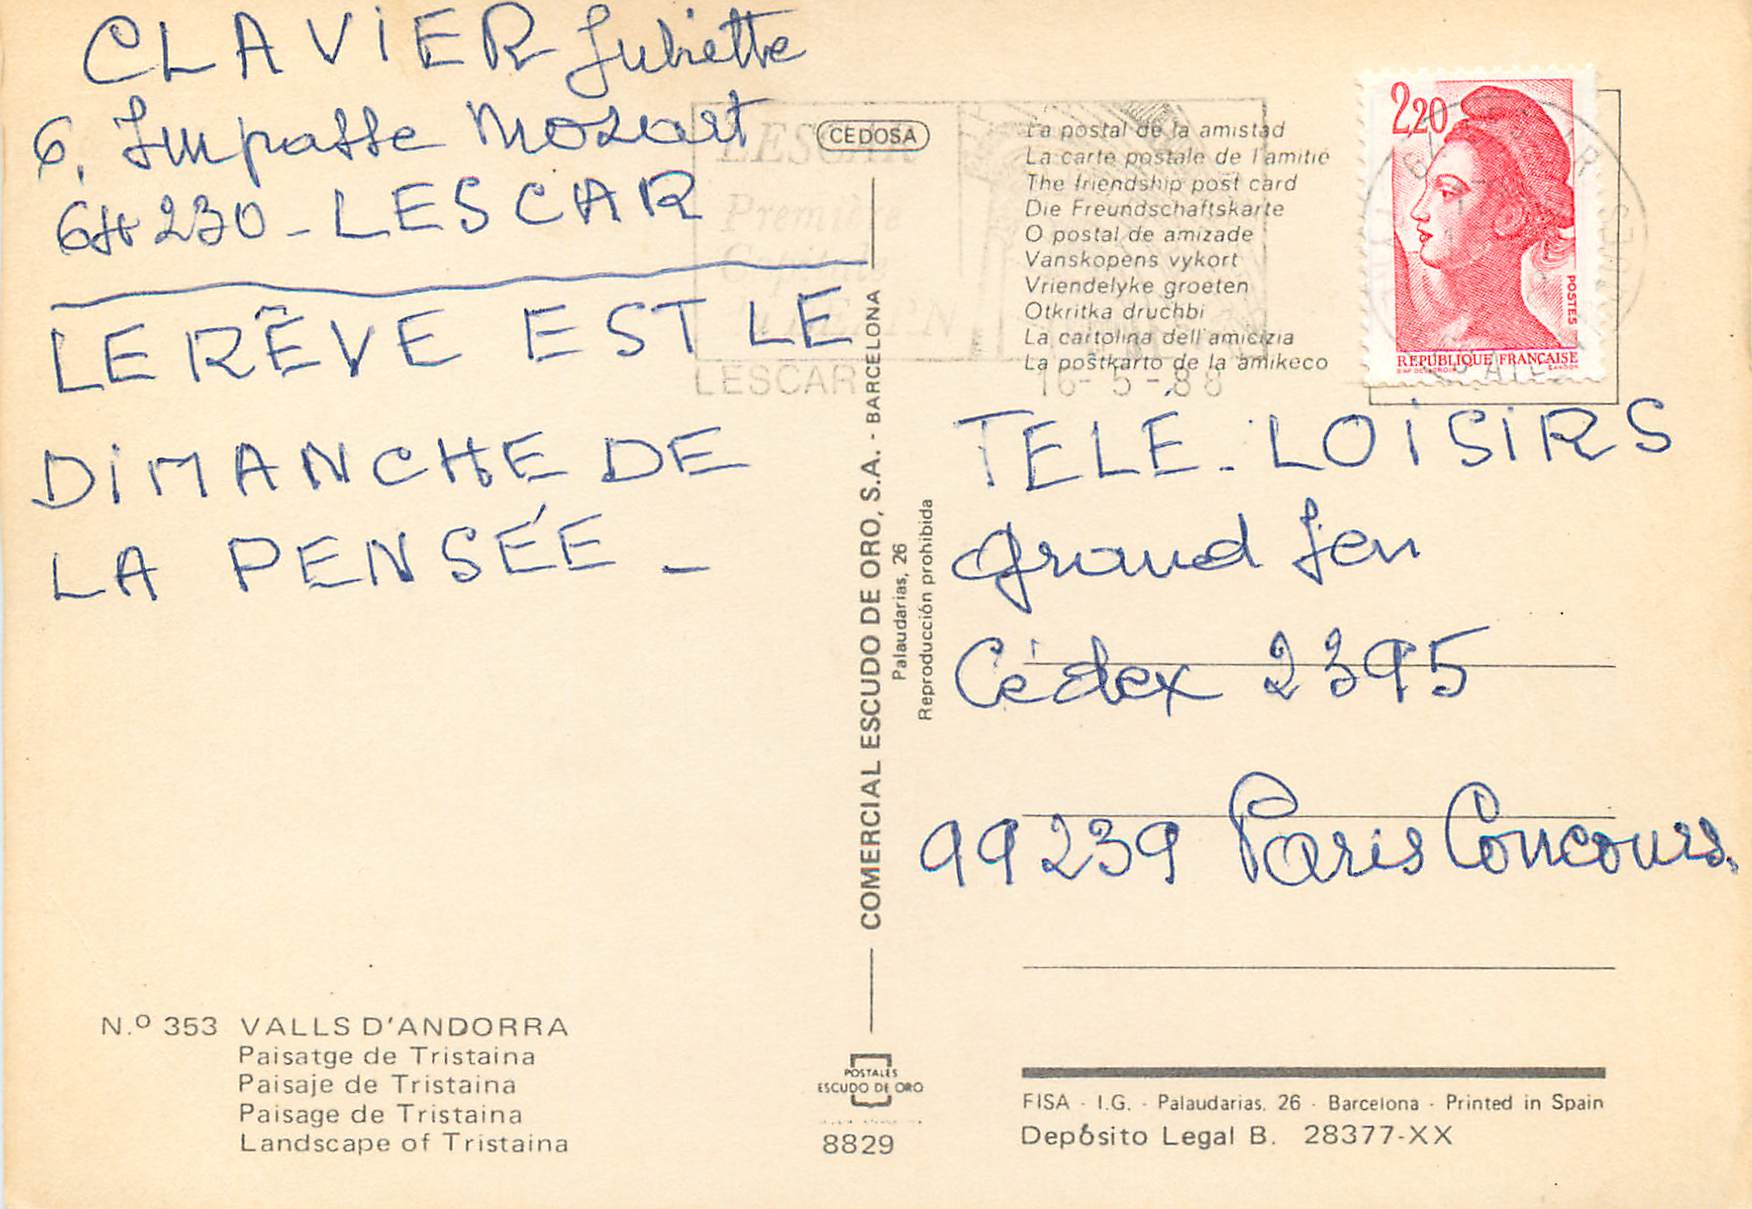 CLAVIER Juliette
6, Impasse Mozart
64230 - LESCAR
LE RÊVE EST LE
DIMANCHE DE
LA PENSÉE -
N.º 353 VALLS D'ANDORRA
Paisatge de Tristaina
Paisaje de Tristaina
Paisage de Tristaina
Landscape of Tristaina
CEDOSA
COMERCIAL ESCUDO DE ORO, S.A. - BARCELONA
Palaudarias, 26
Reproducción prohibida
POSTALES
ESCUDO DE ORO
8829
LESCAR
Première
Capitale
du BEARN
LESCAR
16-5-88
La postal de la amistad
La carte postale de l'amitié
The friendship post card
Die Freundschaftskarte
O postal de amizade
Vanskopens vykort
Vriendelyke groeten
Otkritka druchbi
La cartolina dell'amicizia
La poŝtkarto de la amikeco
2,20
POSTES
REPUBLIQUE FRANÇAISE
TÉLÉ-LOISIRS
Grand Jeu
Cédex 2395
99239 Paris Concours.
FISA - I.G. - Palaudarias, 26 - Barcelona - Printed in Spain
Depósito Legal B. 28377-XX